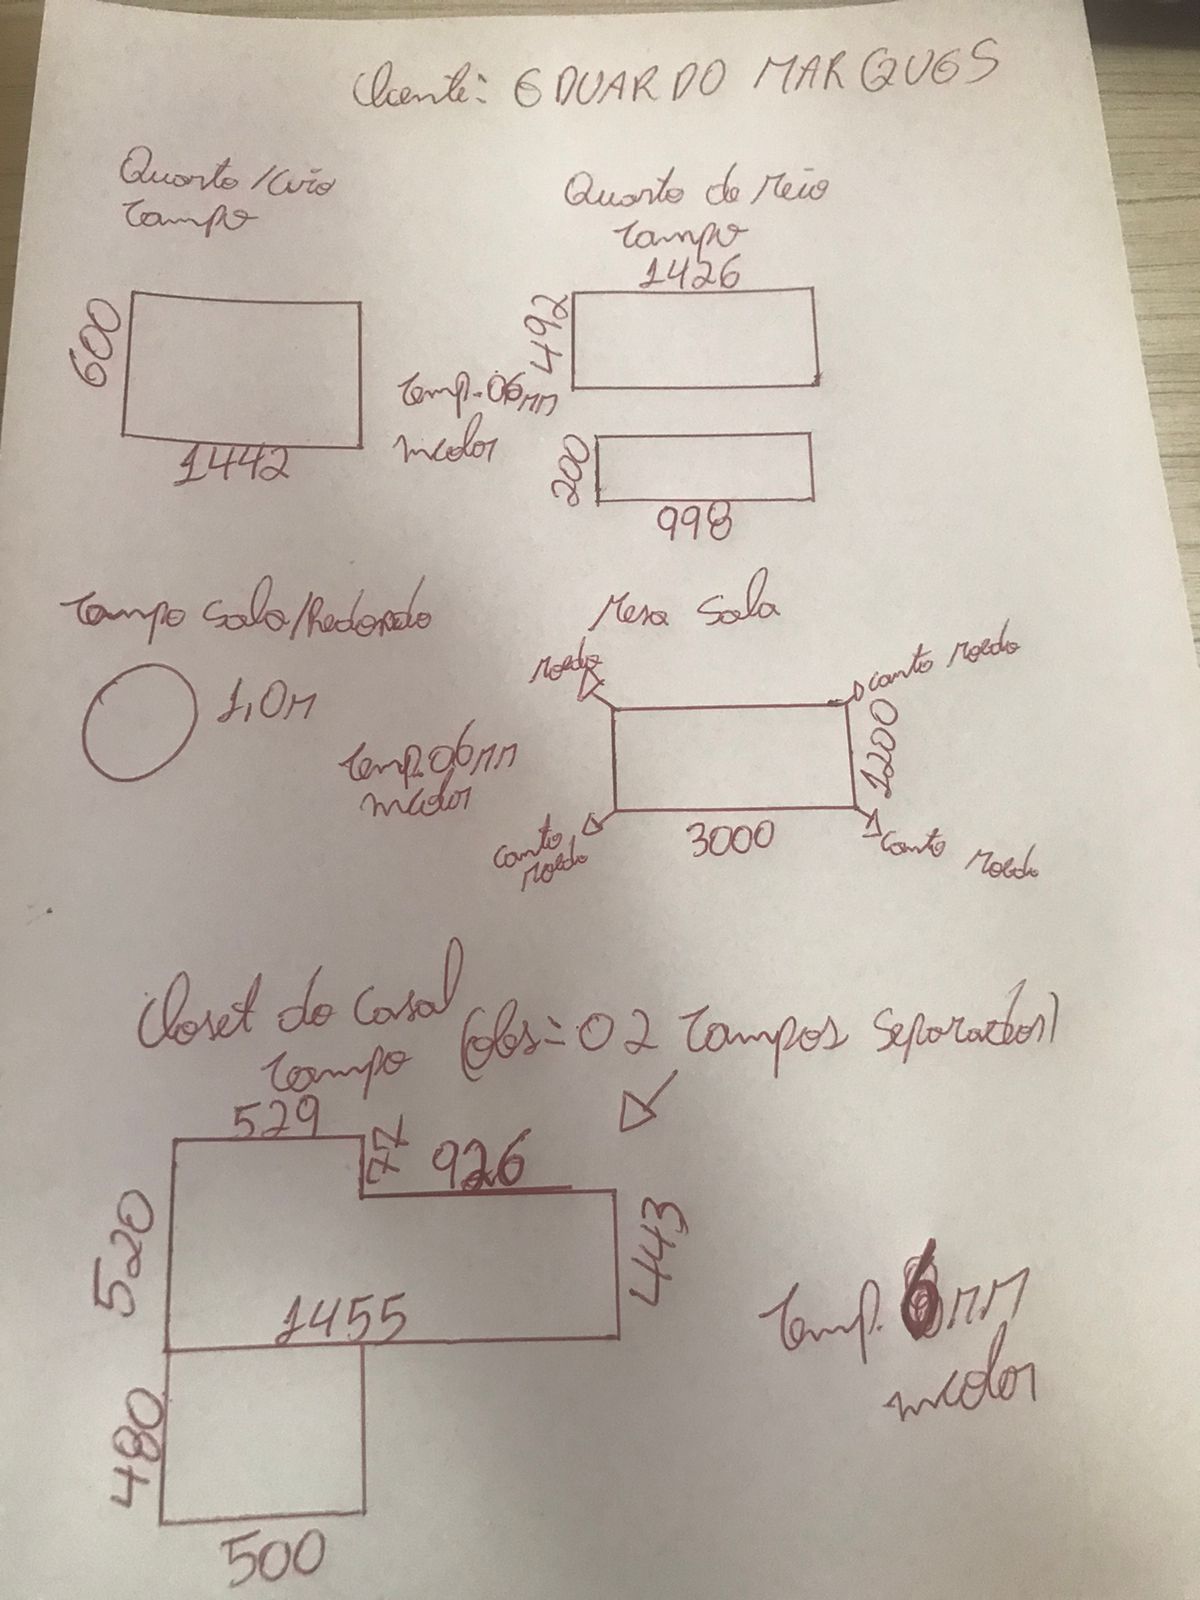 Cliente: EDUARDO MARQUES
Tampo
600
1442
Temp. 06mm
incolor
Quarto do Meio
Tampo
1426
492
200
998
Tampo Sala/Redondo
1,0m
Temp. 06mm
incolor
Mesa Sala
Moedo
canto Moedo
1200
3000
canto
Moedo
canto Moedo
Closet do Casal
Tampo (obs: 02 Tampos Separados)
529
77
926
520
443
1455
480
500
Temp. 6mm
incolor